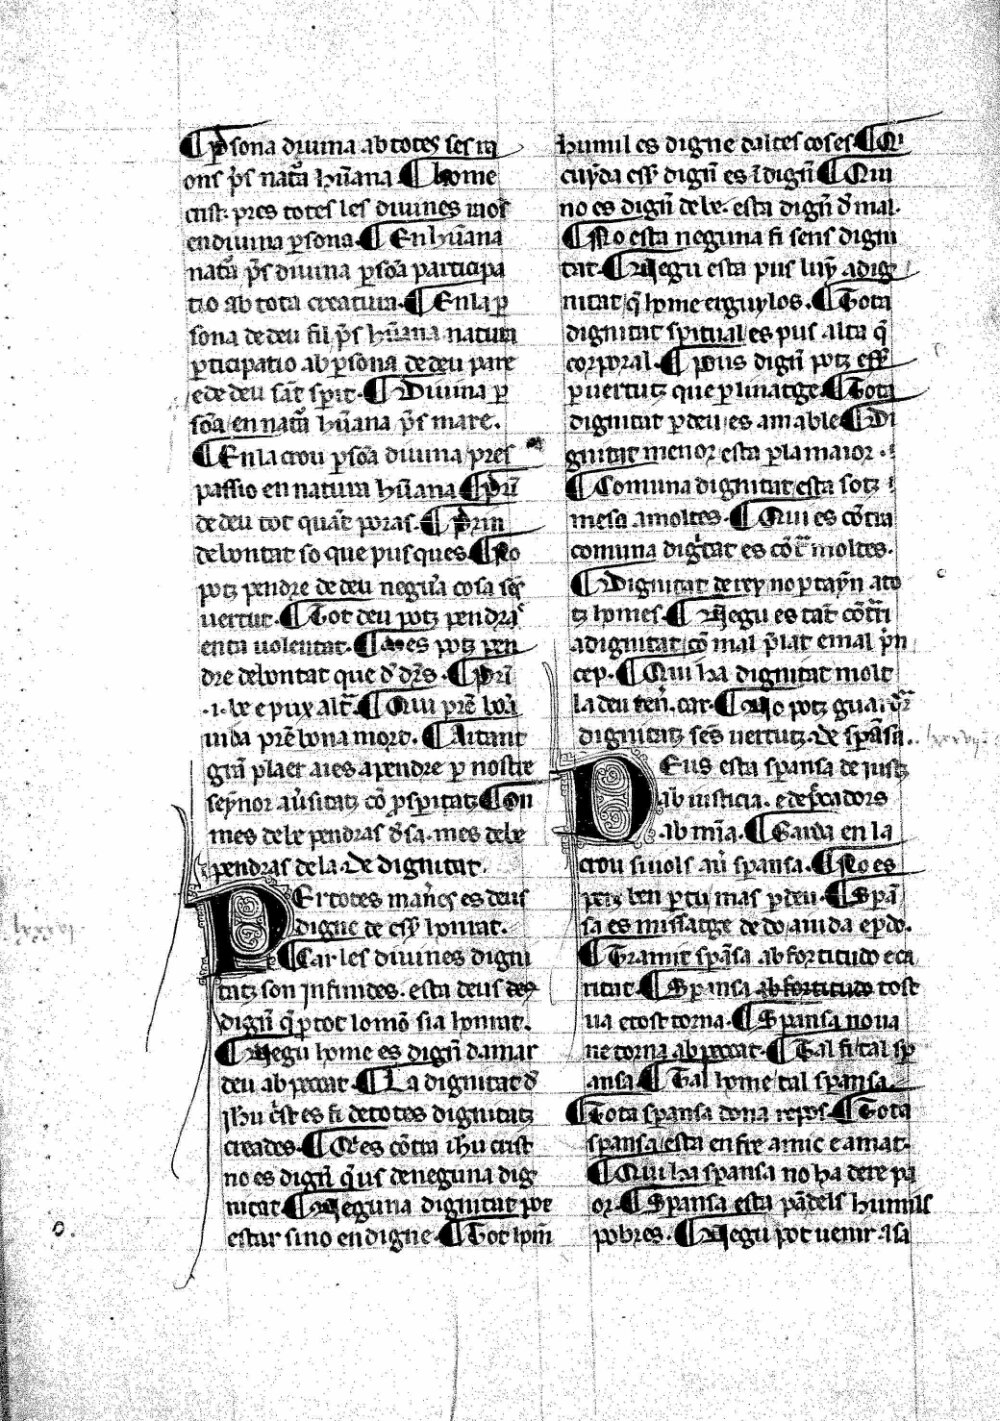 ¶ P̲sona diuina ab totes ses ra
ons p̃s natũa hũana ¶ home
crist. pres totes les diuines raõs
en diuina p̲sona. ¶ En hũana
natũa p̃s diuina p̲soña participa
tio ab tota creatura. ¶ En la p̲
sona de deu fil p̃s hũana natura
p̲ticipatio ab p̲sona de deu pare
e de deu sãt sp̲it. ¶ Diuina p̲
soña en natũa hũana p̃s mare.
¶ En la crou p̲soña diuina pres
passio en natura hũana ¶ Prĩ
de deu tot quãt poras. ¶ Prin
de bontat so que pusques ¶ No
potz pendre de deu neguña cosa seš
uertut. ¶ Tot deu potz pendra s
en ta uolentat. ¶ Mes potz pen
dre de bontat que d' d̃rs. ¶ Prĩ
.i. be e puix altr̃. ¶ Qui prẽ bõa
uida prẽ bona mort. ¶ Aitant
grã plaer aies a pendre p̲ nostre
seyñor au̓sitatz cõ p̲sp̲itatz ¶ On
mes de be pendras d̓ sa. mes de be
pendras de la. De dignitat.
Per totes mañes es deus
digne de ess̓ honrat.
¶ Car les diuines digni
tatz son infinides. esta deus
digñ q̃ p̲ tot lo mõ sia honrat.
¶ Negu home es digñ d amar
deu ab peccat. ¶ La dignitat d̓
ihu c̃st es fi de totes dignitatz
creades. ¶ Q̓ es cõtra ihu crist
no es digñ q̓us de neguna dig
nitat. ¶ Neguna dignitat pot
estar sino en digne. ¶ Tot hom̃
humil es digne daltes coses ¶ Qi
cuyda ess̓ digñ es ĩdigñ ¶ Qui
no es digñ de be. esta digñ d̓ mal.
¶ No esta neguna fi sens digni
tat. ¶ Negu esta pus luỹ a dig
nitat q̃ home erguylos. ¶ Tota
dignitat sp̲itual es pus alta q̃
corporal. ¶ Pus digñ potz ess̓
p̲ uertutz que p̲ linatge. ¶ Tota
dignitat p̲ deu es amable ¶ Di
gnitat menor esta p̲ la maior.
¶ Comuna dignitat esta sotz
mesa a moltes. ¶ Qui es cõtra
comuna digñtat es cõt̃ moltes.
¶ Dignitat de rey no p̲tayñ a to
tz homes. ¶ Negu es tãt cõtrri
a dignitat cõ mal p̃lat e mal p̃n
cep. ¶ Qui ha dignitat molt
la deu teñ. car. ¶ No potz guardr̃
dignitatz señs uertutz. De sperãsa.
Deus esta speransa de justz
ab iusticia. e de pecadors
ab mĩa. ¶ Guarda en la
crou si uols au̓ speransa. ¶ No es
petz ben p̲ tu mas p̲ deu. ¶ Sperã
sa es missatge de do aiuda e p̲do.
¶ Tramit sperãsa ab fortitudo e ca
ritat. ¶ Speransa ab fortitudo tost
ua e tost torna. ¶ Speransa no ua
ne torna ab peccat. ¶ Tal fi tal sper
ansa ¶ Tal home tal speransa.
¶ Tota speransa dona repos. ¶ Tota
speransa esta enfre amic e amat.
¶ Qui ha speransa no ha dere pa
or. ¶ Speransa esta pã dels humils
pobres. ¶ Negu pot uenir a sa